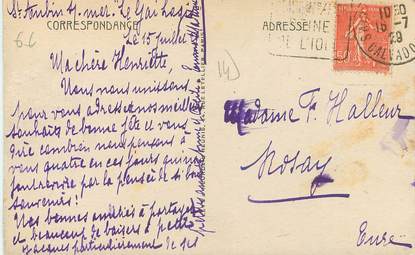 St Aubin s/mer. Le Gai Logis
CORRESPONDANCE
Le 15 juillet
Ma chère Henriette,
Nous nous unissons
pour vous adresser nos meilleurs
souhaits de bonne fête et vous
dire combien nous pensons à
vous quatre en ces jours qui nous
font revivre par la pensée de si bons
souvenirs!
Nos bonnes amitiés à partager
et beaucoup de baisers à petit
Jacques particulièrement de ses
ADRESSE
10 30
16 - 7
CALVADOS
6.6
14)
Madame F. Halleur
Rosay
Eure